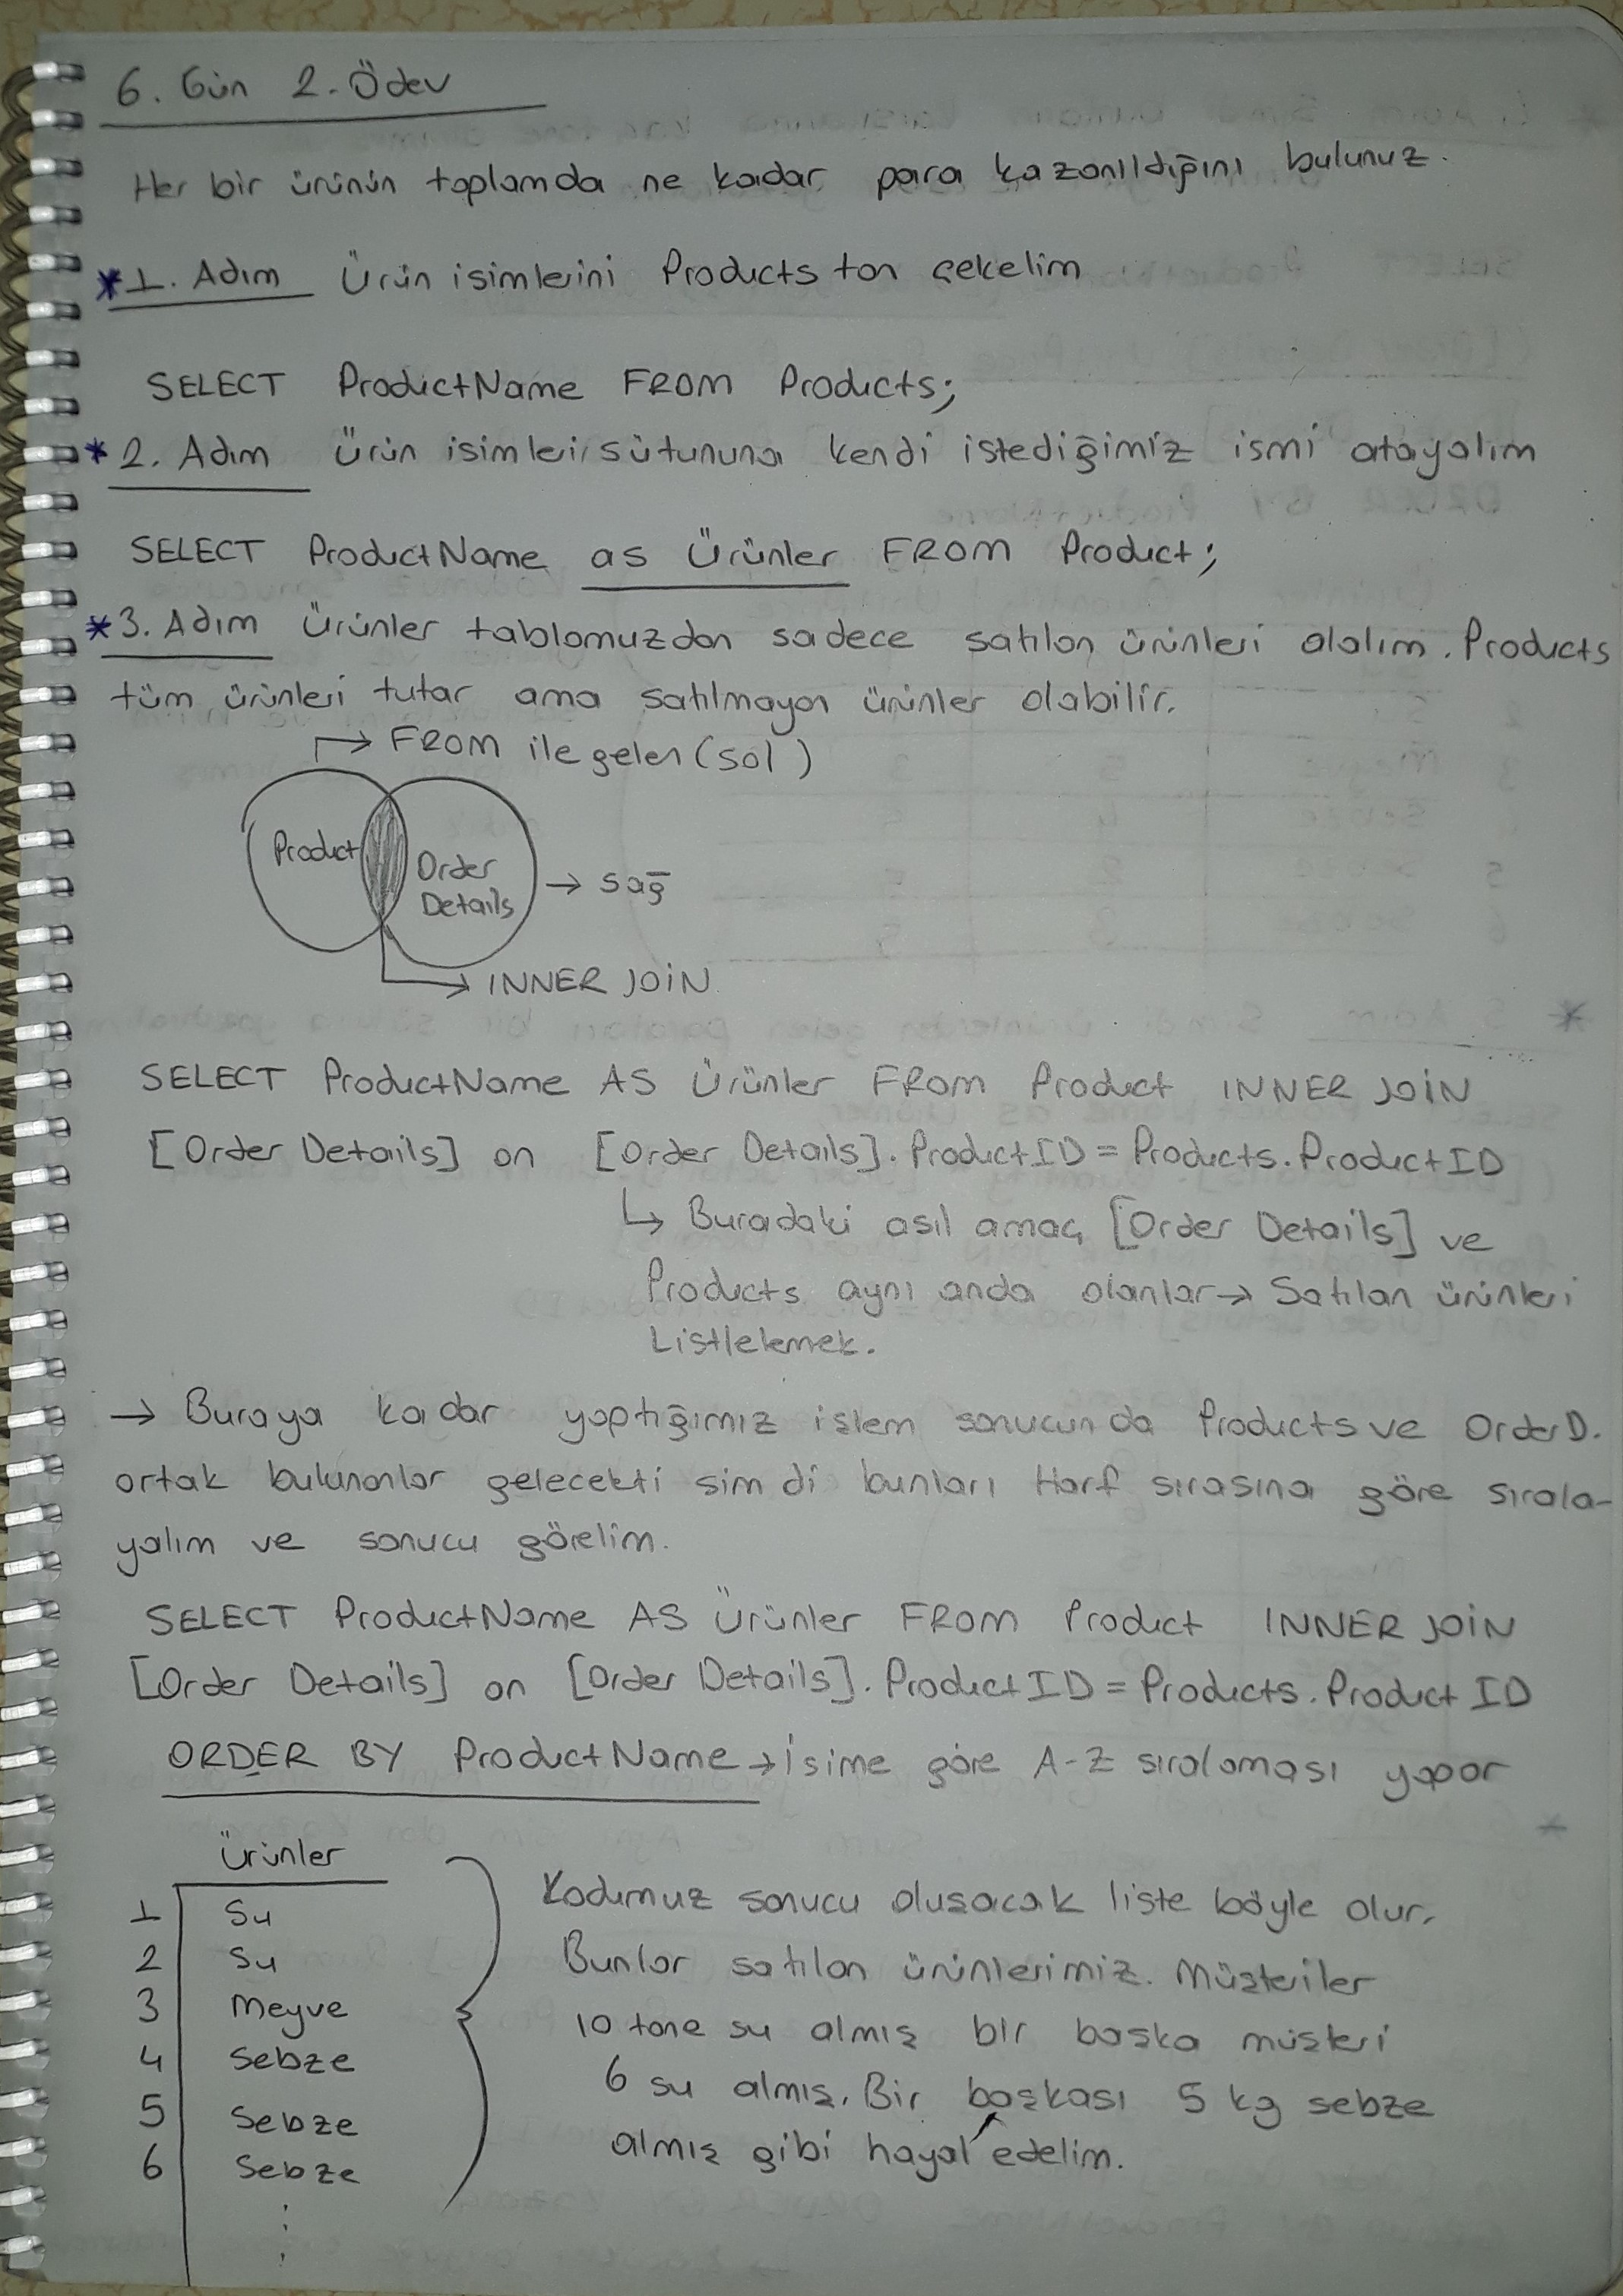 6. Gün 2. Ödev
Her bir ürünün toplamda ne kadar para kazanıldığını bulunuz.
*1. Adım Ürün isimlerini Products tan çekelim
SELECT ProductName FROM Products;
*2. Adım Ürün isimleri sütununa kendi istediğimiz ismi atayalım
SELECT ProductName as Ürünler FROM Product;
*3. Adım Ürünler tablomuzdan sadece satılan ürünleri alalım. Products
tüm ürünleri tutar ama satılmayan ürünler olabilir.
→ FROM ile gelen (sol)
Product
Order
Details
→ sağ
→ INNER JOİN
SELECT ProductName AS Ürünler FROM Product INNER JOİN
[Order Details] on [Order Details].ProductID = Products.ProductID
↳ Buradaki asıl amaç [Order Details] ve
Products aynı anda olanlar → Satılan ürünleri
Listlelemek.
→ Buraya kadar yaptığımız işlem sonucunda Products ve OrderD.
ortak bulunanlar gelecekti simdi bunları Harf sırasına göre sırala-
yalım ve sonucu görelim.
SELECT ProductName AS Ürünler FROM Product INNER JOİN
[Order Details] on [Order Details].ProductID = Products.ProductID
ORDER BY ProductName → İsime göre A-Z sıralaması yapar
Ürünler
1 Su
2 Su
3 Meyve
4 Sebze
5 Sebze
6 Sebze
Kodumuz sonucu oluşacak liste böyle olur.
Bunlar satılan ürünlerimiz. Müşteriler
10 tane su almış bir başka müşteri
6 su almış. Bir başkası 5 kg sebze
almış gibi hayal edelim.